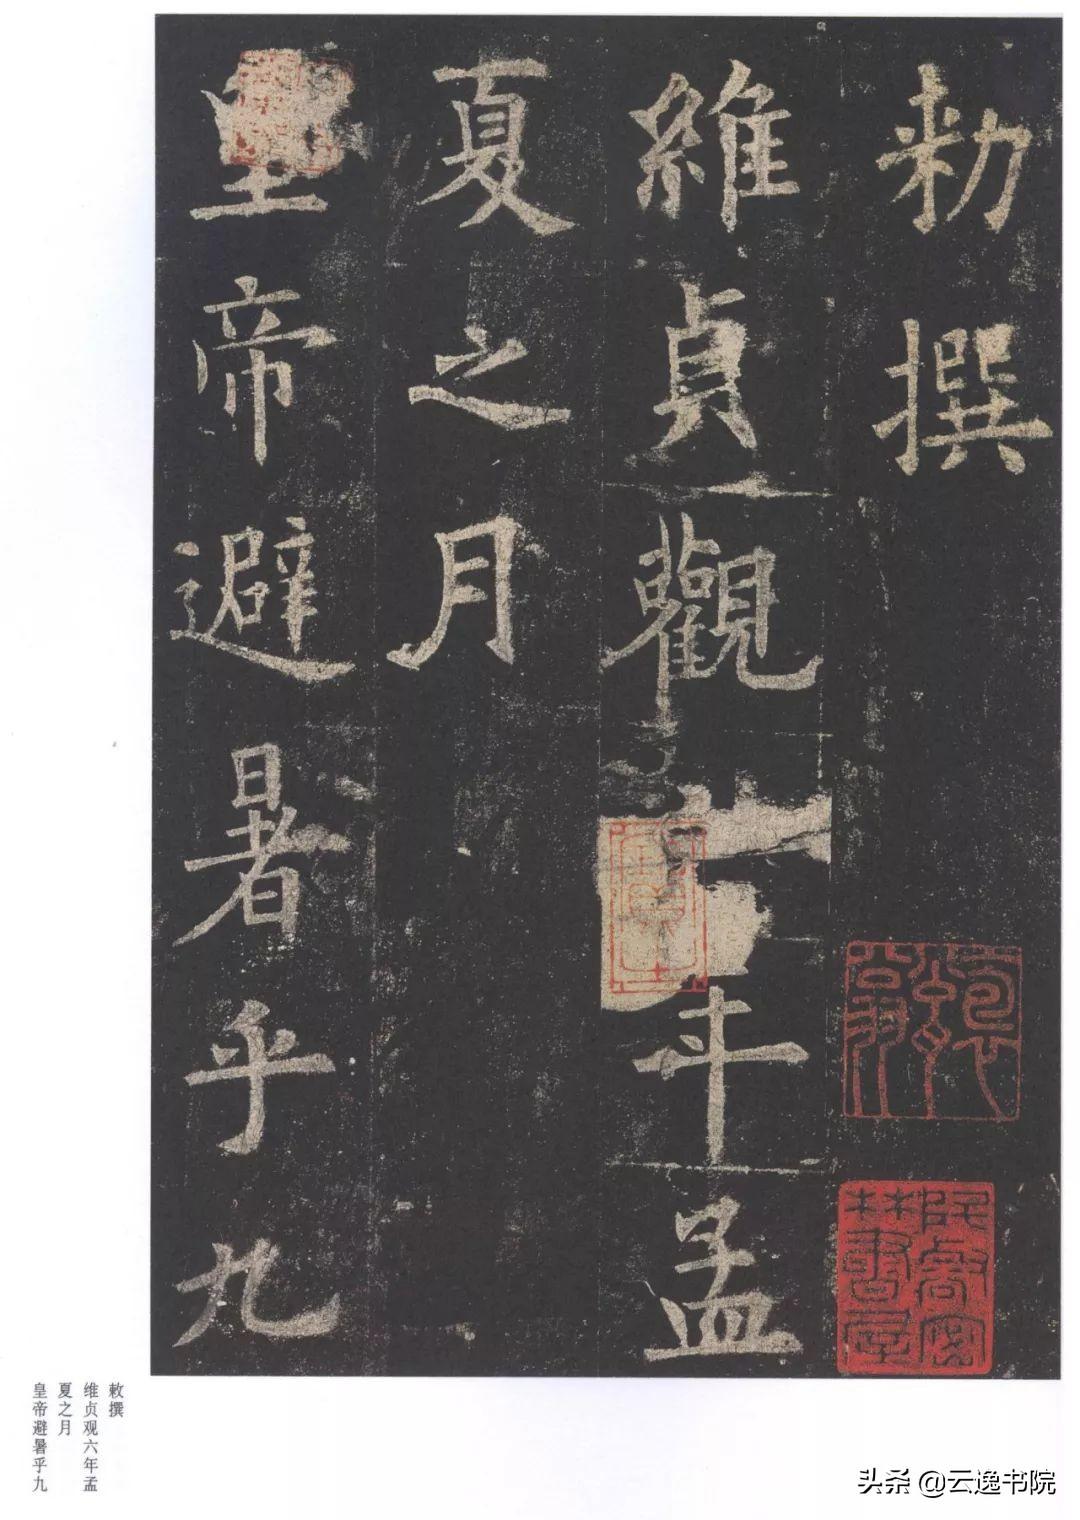 勑撰
維貞觀
年孟
夏之月
皇帝避暑乎九
敕撰
维贞观六年孟
夏之月
皇帝避暑乎九
头条 @云逸书院